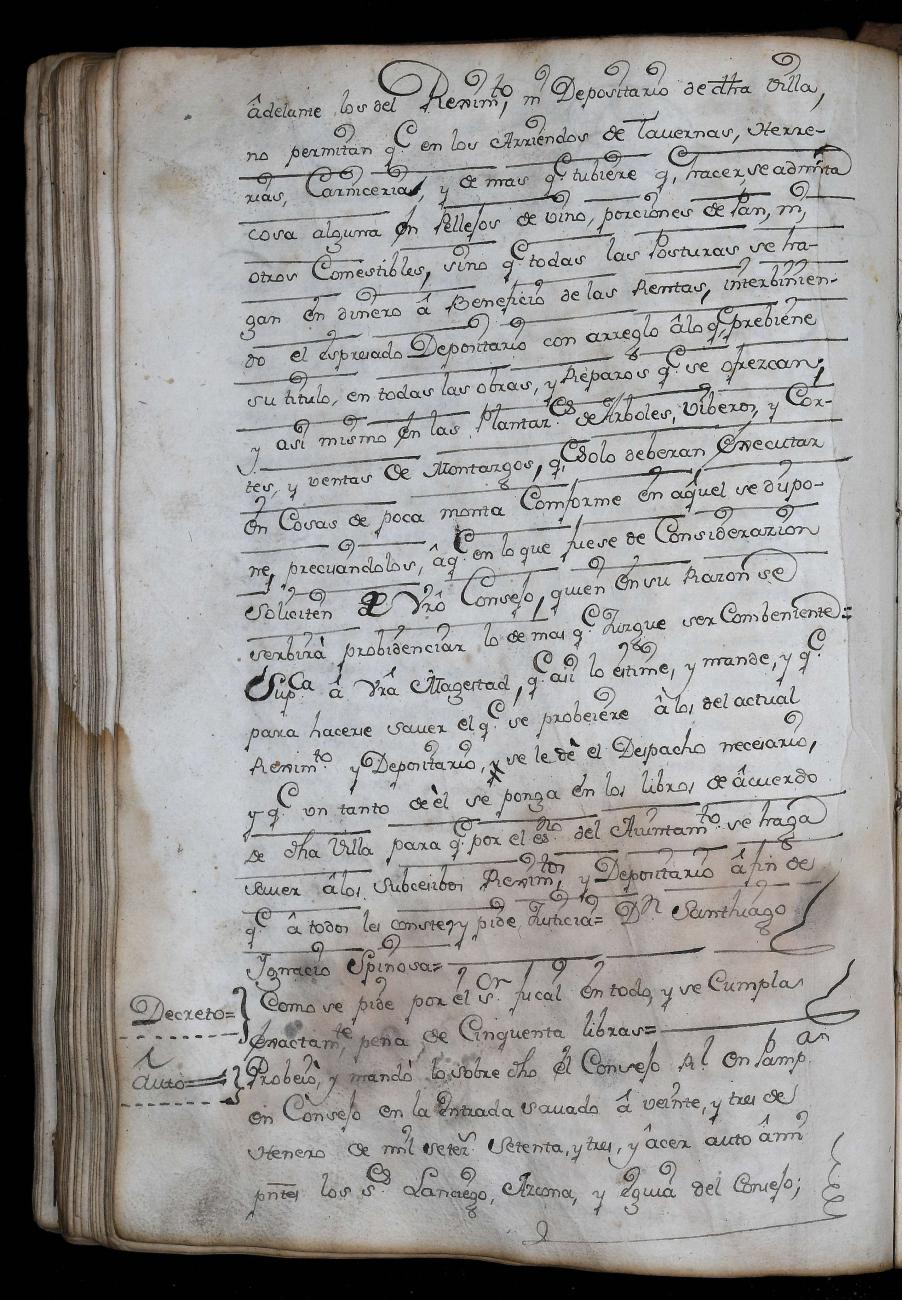 âdelante los del Rexim.to, ni Depositario de dha Villa,
no permitan q.e en los Arriendos de Tavernas, Herre-
rias, Carnicerias, y de mas q.e tubiere q.e hacer, se admita
cosa alguna en Pellejos de vino, porciones de Pan, ni,
otros Comestibles, sino q.e todas las Posturas se ha-
gan en dinero â Beneficio de las Rentas, interbinien-
do el espresado Depositario con arreglo âlo q.e prebiene
su titulo, en todas las obras, y Reparos q.e se ofrezcan;
y asi mismo en las Plantaz.es de Arboles, Viberos, y Cor-
tes, y ventas de Montazgos, q.e solo deberan executar
en Cosas de poca monta Comforme en aquel se dispo-
ne, precisandolos, âq.e en lo que fuese de Considerazion
Soliciten â Vrô Consejo, quien en su Razon se
serbirà probidenciar lo de mas q.e Juzgue ser Combeniente=
Sup.ca â Vrâ Magestad, q.e asi lo estime, y mande, y q.e
para hacerse saver el q.e se probeiere âlos del actual
Rexim.to y Depositario, se le dè el Despacho necesario,
y q.e un tanto de èl se ponga en los libros de âcuerdo
de dha Villa para q.e por el es.no del Aiuntam.to se haga
saver âlos subcesibos Rexim.tos y Depositario â fin de
q.e â todos les conste, y pide Justicia= D.n Santhiago
Ygnacio Spinosa=
Decreto= Como se pide por el s.or fiscal en todo, y se Cumpla
exactam.te pena de Cinquenta libras=
âuto= Probeiò, y mandò lo sobre dho el Consejo Rl. en Pamp.an
en Consejo en la entrada savado â veinte, y tres de
Henero de mil setez.s setenta, y tres, y âcer auto âmi
pntes los s.es Lanciego, Arcona, y Eguia del Consejo;